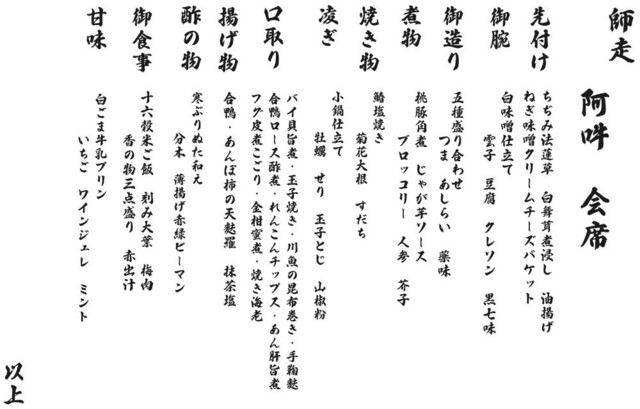 師走
阿吽 会席
先付け
ちぢみ法蓮草 白舞茸煮浸し 油揚げ
ねぎ味噌クリームチーズバケット
御腕
白味噌仕立て
雲子 豆腐 クレソン 黒七味
御造り
五種盛り合わせ
つま あしらい 薬味
煮物
桃豚角煮 じゃが芋ソース
ブロッコリー 人参 芥子
焼き物
鰆塩焼き
菊花大根 すだち
凌ぎ
小鍋仕立て
牡蠣 せり 玉子とじ 山椒粉
口取り
バイ貝旨煮・玉子焼き・川魚の昆布巻き・手鞠麩
合鴨ロース酢煮・れんこんチップス・あん肝旨煮
フグ皮煮こごり・金柑蜜煮・焼き海老
揚げ物
合鴨・あんぽ柿の天麩羅 抹茶塩
酢の物
寒ぶりぬた和え
分木 薄揚げ赤緑ピーマン
御食事
十六穀米ご飯 刻み大葉 梅肉
香の物三点盛り 赤出汁
甘味
白ごま牛乳プリン
いちご ワインジェレ ミント
以上